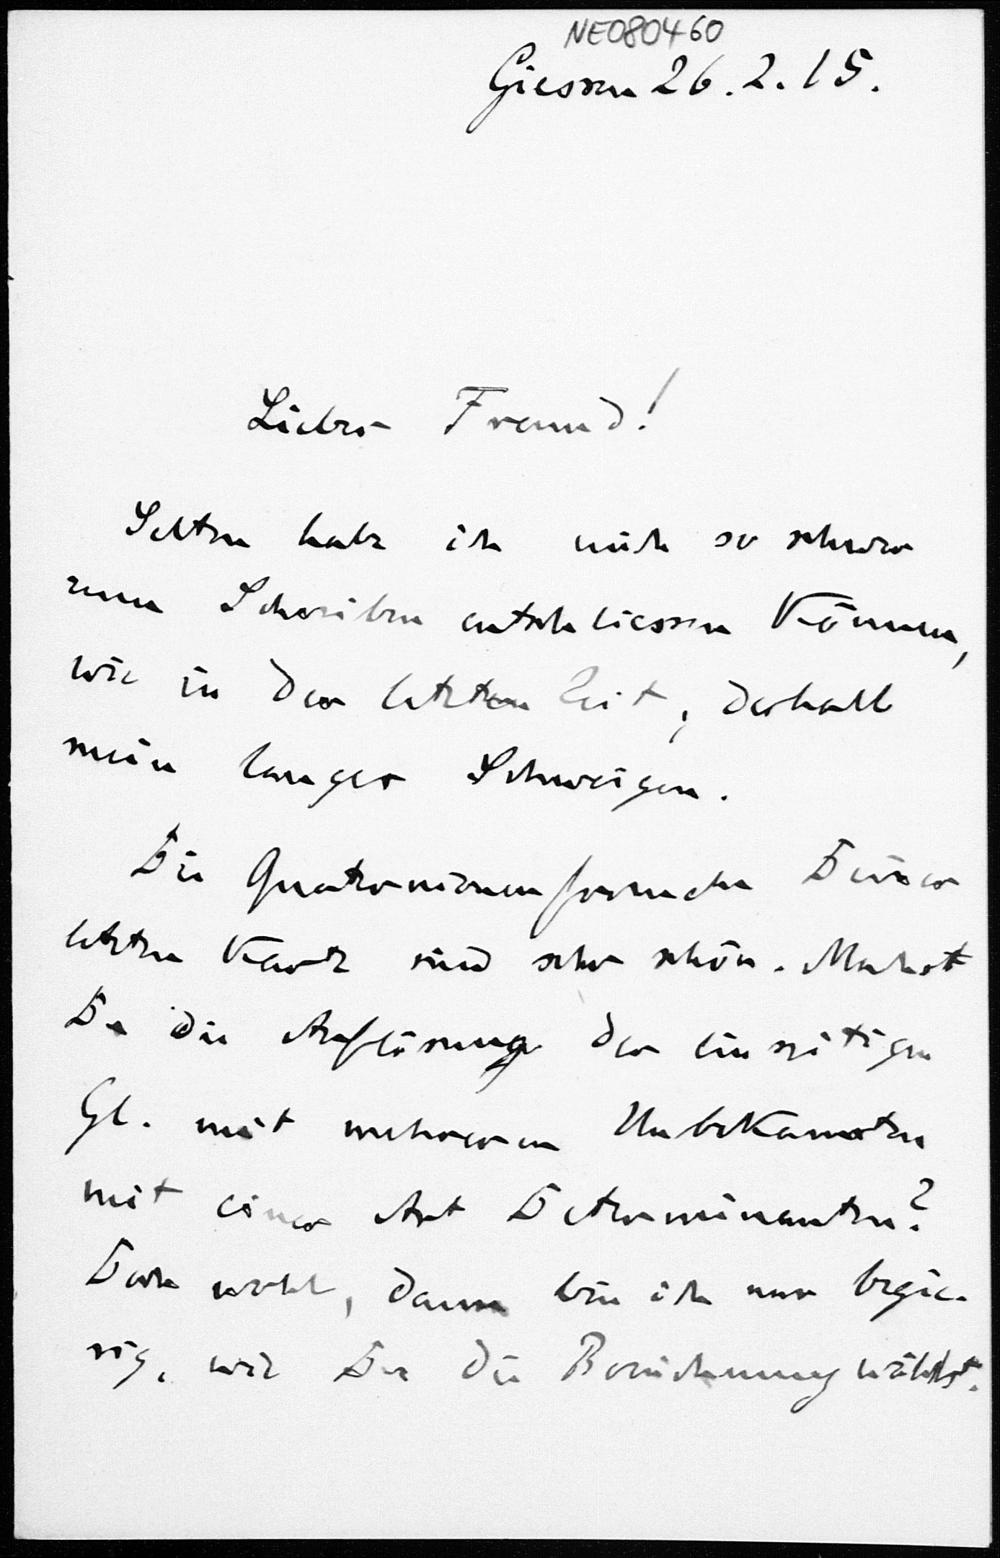 NE080460
Giessen 26.2.15.
Lieber Freund!
Selten habe ich mich so schwer
zum Schreiben entschliessen können,
wie in der letzten Zeit, deshalb
mein langes Schweigen.
Die Quaternionenformeln Deiner
letzten Karte sind sehr schön. Machst
Du die Auflösung der einseitigen
Gl. mit mehreren Unbekannten
mit einer Art Determinanten?
Doch wohl, dann bin ich nur begie-
rig, wie Du die Bezeichnung wählst.